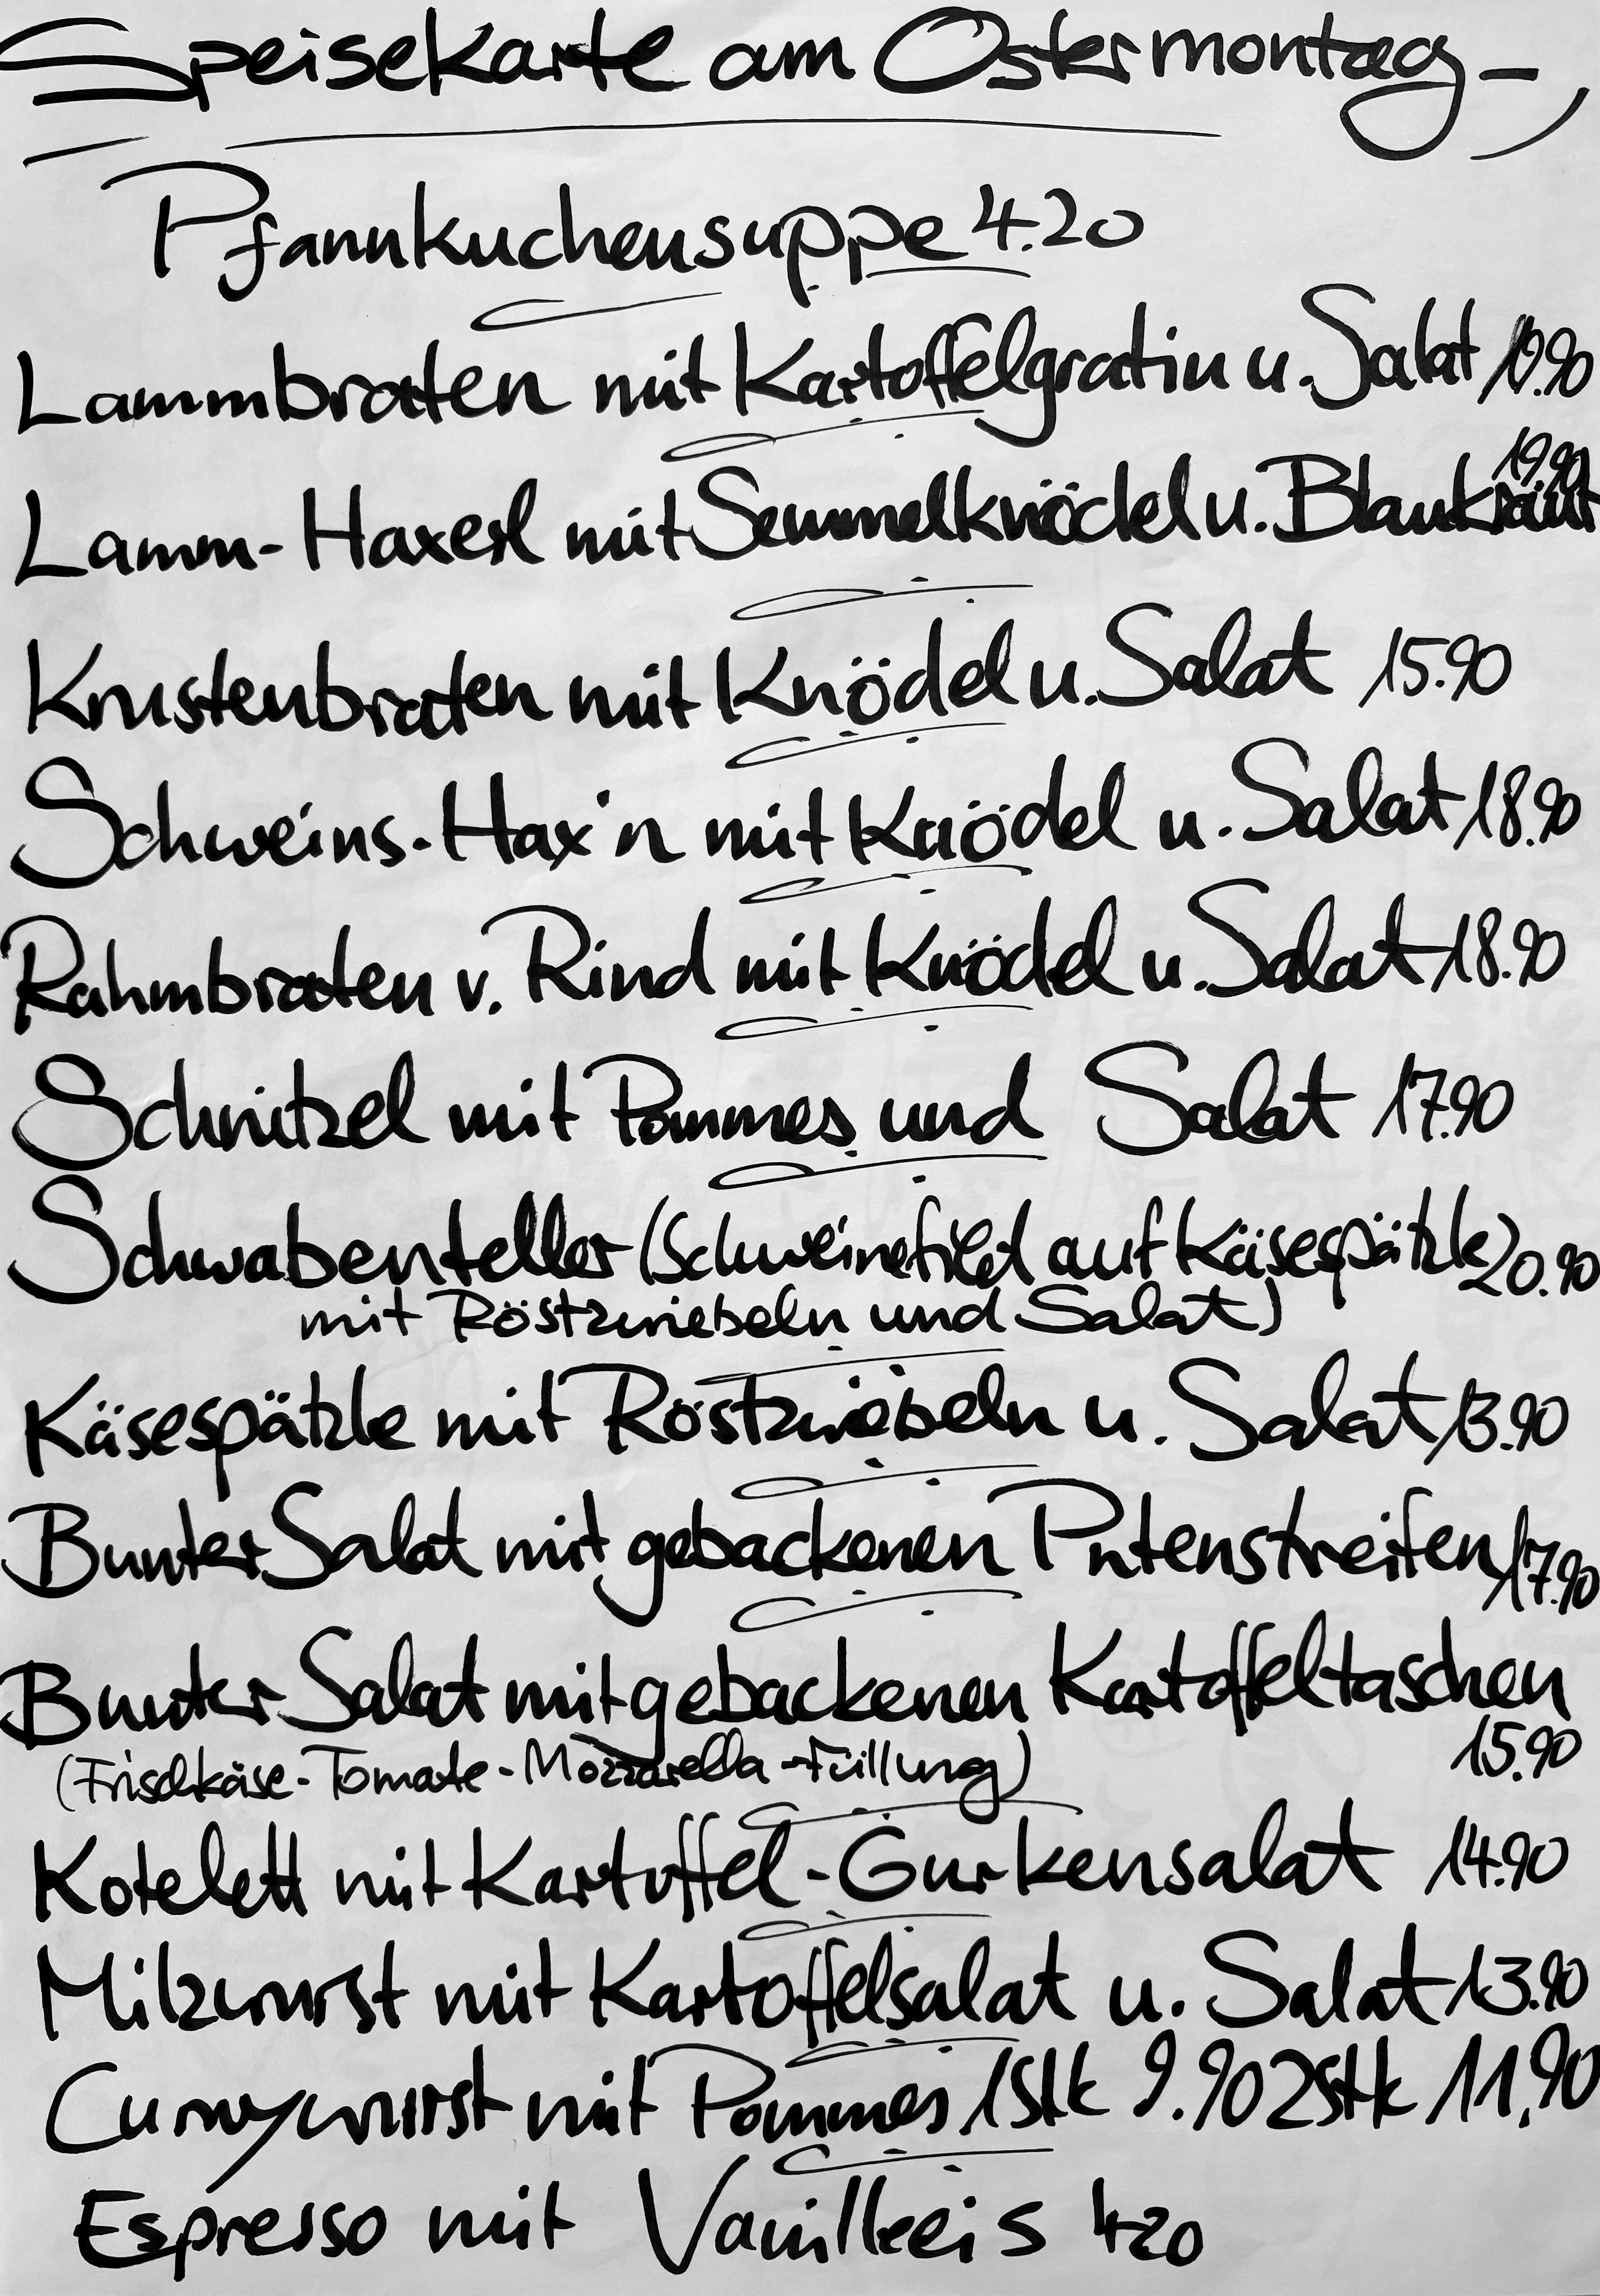 Speisekarte am Ostermontag
Pfannkuchensuppe 4.20
Lammbraten mit Kartoffelgratin u. Salat 19.90
19.90
Lamm-Haxerl mit Semmelknödel u. Blaukraut
Krustenbraten mit Knödel u. Salat 15.90
Schweins-Hax'n mit Knödel u. Salat 18.90
Rahmbraten v. Rind mit Knödel u. Salat 18.90
Schnitzel mit Pommes und Salat 17.90
Schwabenteller (Schweinefilet auf Käsespätzle 20.90
mit Röstzwiebeln und Salat)
Käsespätzle mit Röstzwiebeln u. Salat 13.90
Bunter Salat mit gebackenen Putenstreifen 17.90
Bunter Salat mit gebackenen Kartoffeltaschen
(Frischkäse-Tomate-Mozzarella-Füllung) 15.90
Kotelett mit Kartoffel-Gurkensalat 14.90
Milzwurst mit Kartoffelsalat u. Salat 13.90
Currywurst mit Pommes 1Stk 9.90 2Stk 11,90
Espresso mit Vanilleeis 420